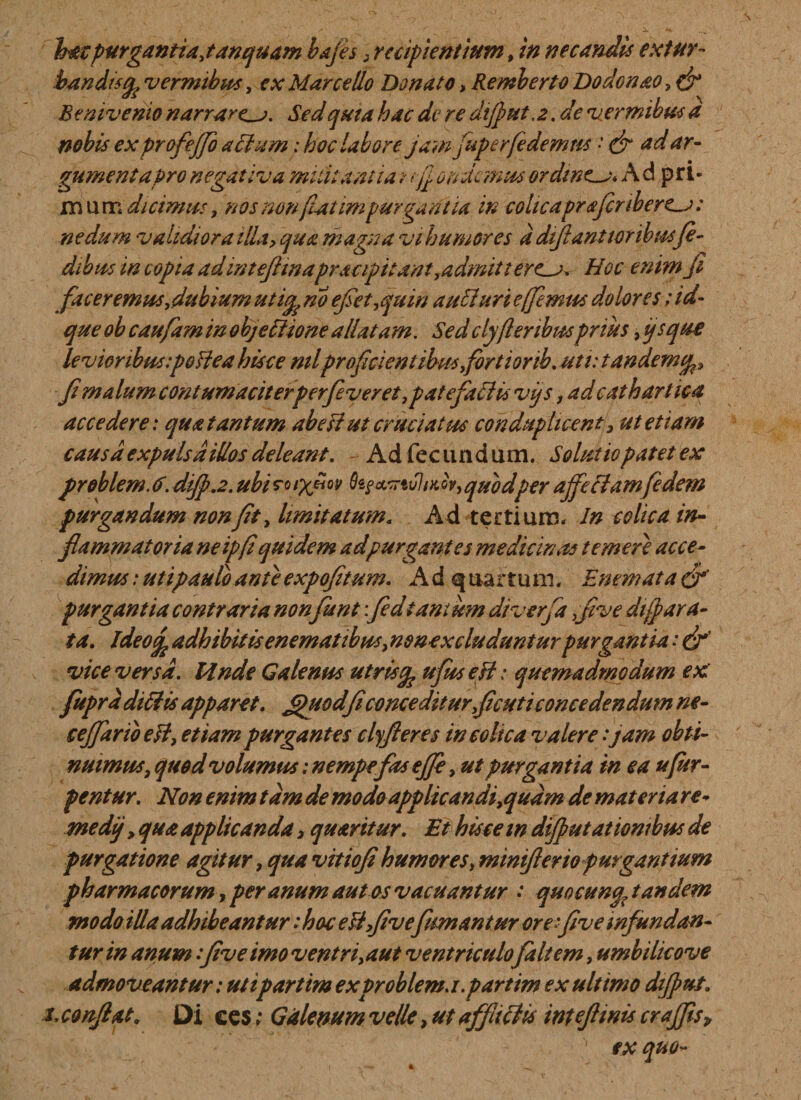 hæc purgantia, tanquam bases, recipientium, in necandis extur-
bandisq; vermibus, ex Marcello Donato, Remberto Dodonæo, &
Benivenio narrare. Sed quia hac de re disput. 2. de vermibus à
nobis ex professo actum: hoc labore jam supersedemus: & ad ar-
gumenta pro negativa militantia respondemus ordine. Ad pri-
mum dicimus, nos non statim purgantia in colica præscribere:
nedum validiora illa, quæ magna vi humores à distantioribus se-
dibus in copia ad intestina præcipitant, admittere. Hoc enim si
faceremus, dubium utiq; nō esset, quin aucturi essemus dolores; id-
que ob causam in objectione allatam. Sed clysteribus prius, ijsque
levioribus: postea hisce nil proficientibus, fortiorib. uti: tandemq;,
si malum contumaciter perseveret, patefactis vijs, ad cathartica
accedere: quæ tantum abest ut cruciatus conduplicent, ut etiam
causâ expulsâ illos deleant. Ad secundum. Solutio patet ex
problem. 6. disp. 2. ubi ςοιχεῖον θεραπευτικὸν, quòd per affectam sedem
purgandum non sit, limitatum. Ad tertium. In colica in-
flammatoria ne ipsi quidem ad purgantes medicinas temerè acce-
dimus: uti paulò antè expositum. Ad quartum. Enemata &
purgantia contraria non sunt: sed tantùm diversa, sive dispara-
ta. Ideoq; adhibitis enematibus, non excluduntur purgantia: &
vice versâ. Unde Galenus utrisq; usus est: quemadmodum ex
suprà dictis apparet. Quod si conceditur, sicuti concedendum ne-
cessariò est, etiam purgantes clysteres in colica valere: jam obti-
nuimus, quod volumus: nempe fas esse, ut purgantia in ea usur-
pentur. Non enim tàm de modo applicandi, quàm de materia re-
medij, quæ applicanda, quæritur. Et hisce in disputationibus de
purgatione agitur, qua vitiosi humores, ministerio purgantium
pharmacorum, per anum aut os vacuantur: quocunq; tandem
modo illa adhibeantur: hoc est, sive sumantur ore: sive infundan-
tur in anum: sive imo ventri, aut ventriculo saltem, umbilicove
admoveantur: uti partim ex problem. 1. partim ex ultimo disput.
1. constat. Dices: Galenum velle, ut afflictis intestinis crassis,
ex quo-